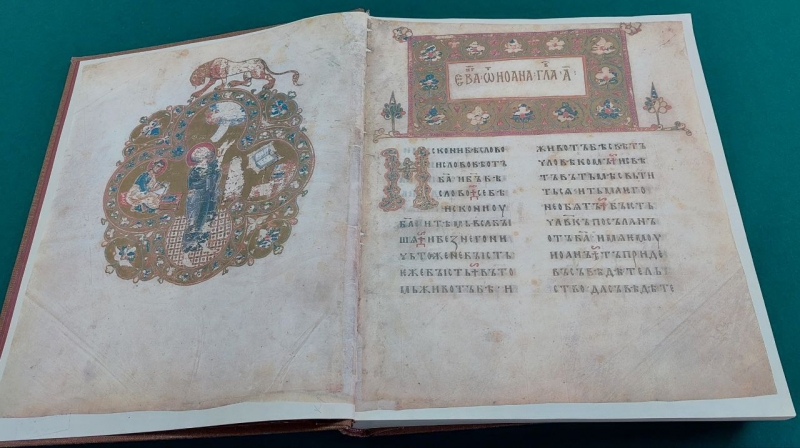 ЕВА҃ ѠТ ИОАНА · ГЛА · А҃ ·
ИСКОНИ БѢ СЛОВО
И СЛОВО БѢ ОТЪ
Б҃А И Б҃Ъ БѢ
СЛОВО СЕ БѢ
ИСКОНИ ОУ
Б҃А И ТѢМЬ ВЬСА БЫ
ША И БЕЗ НЕГО НИ
ЧЬТОЖЕ НЕ БЫСТЬ
ѤЖЕ БЫСТЬ ВЪ ТО
МЬ ЖИВОТЪ БѢ · И
ЖИВОТЪ БѢ СВѢТЪ
ЧЛОВѢКОМЪ И СВѢ
ТЪ ВЪ ТЬМѢ СВЬТИ
ТЬСѦ · И ТЬМА ѤГО
НЕ ОБѦТЪ БЫСТЬ
ЧЛ҃ВКЪ ПОСЪЛАНЪ
ОТЪ Б҃А · ИМѦ ѤМОУ
ИОАНЪ ТЪ ПРИДЕ
ВЪ СЪВѢДѢТЕЛЬ
СТВО · ДА СЪВѢДѢТЕ